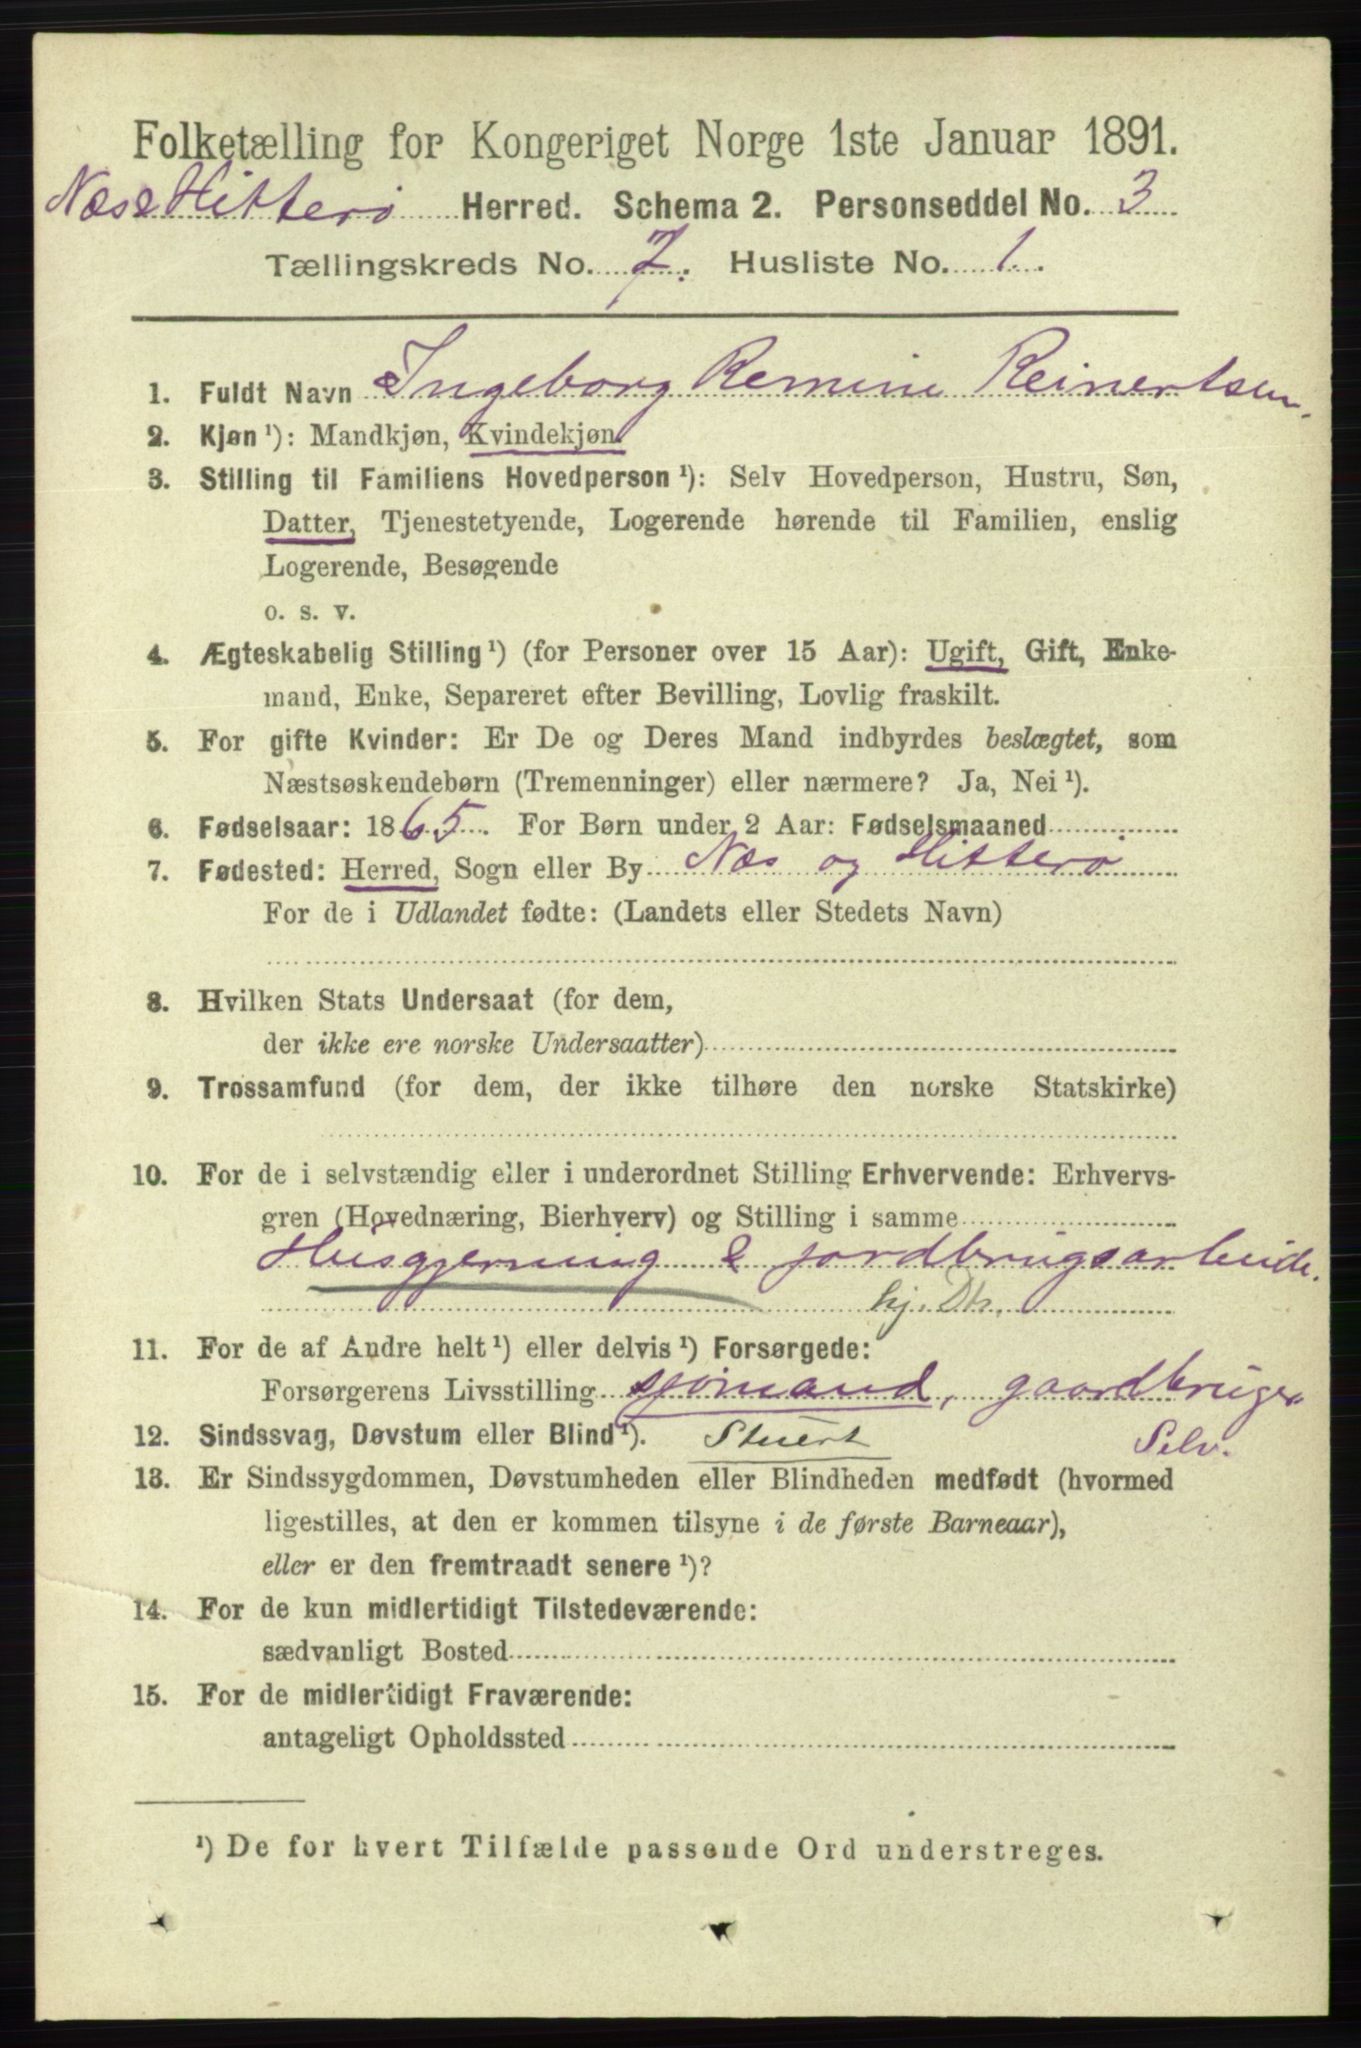 Folketælling for Kongeriget Norge 1ste Januar 1891.
Næs & Hitterø Herred. Schema 2. Personseddel No. 3
Tællingskreds No. 7. Husliste No. 1.
1. Fuldt Navn Ingeborg Remine Reinertsen.
2. Kjøn ¹): Mandkjøn, Kvindekjøn.
3. Stilling til Familiens Hovedperson ¹): Selv Hovedperson, Hustru, Søn,
Datter, Tjenestetyende, Logerende hørende til Familien, enslig
Logerende, Besøgende
o. s. v.
4. Ægteskabelig Stilling ¹) (for Personer over 15 Aar): Ugift, Gift, Enke-
mand, Enke, Separeret efter Bevilling, Lovlig fraskilt.
5. For gifte Kvinder: Er De og Deres Mand indbyrdes beslægtet, som
Næstsøskendebørn (Tremenninger) eller nærmere? Ja, Nei ¹).
6. Fødselsaar: 1865. For Børn under 2 Aar: Fødselsmaaned
7. Fødested: Herred, Sogn eller By Næs og Hitterø
For de i Udlandet fødte: (Landets eller Stedets Navn)
8. Hvilken Stats Undersaat (for dem,
der ikke ere norske Undersaatter)
9. Trossamfund (for dem, der ikke tilhøre den norske Statskirke)
10. For de i selvstændig eller i underordnet Stilling Erhvervende: Erhvervs-
gren (Hovednæring, Bierhverv) og Stilling i samme
Husgjerning & jordbrugsarbeide.
hj. Dtr.
11. For de af Andre helt ¹) eller delvis ¹) Forsørgede:
Forsørgerens Livsstilling sjömand, gaardbruger
12. Sindssvag, Døvstum eller Blind ¹). Stuert Selv.
13. Er Sindssygdommen, Døvstumheden eller Blindheden medfødt (hvormed
ligestilles, at den er kommen tilsyne i de første Barneaar),
eller er den fremtraadt senere ¹)?
14. For de kun midlertidigt Tilstedeværende:
sædvanligt Bosted
15. For de midlertidigt Fraværende:
antageligt Opholdssted
¹) De for hvert Tilfælde passende Ord understreges.